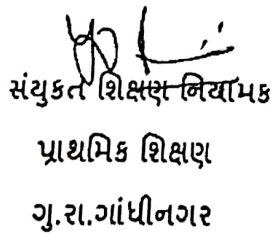 સંયુકત શિક્ષણ નિયામક
પ્રાથમિક શિક્ષણ
ગુ.રા.ગાંધીનગર